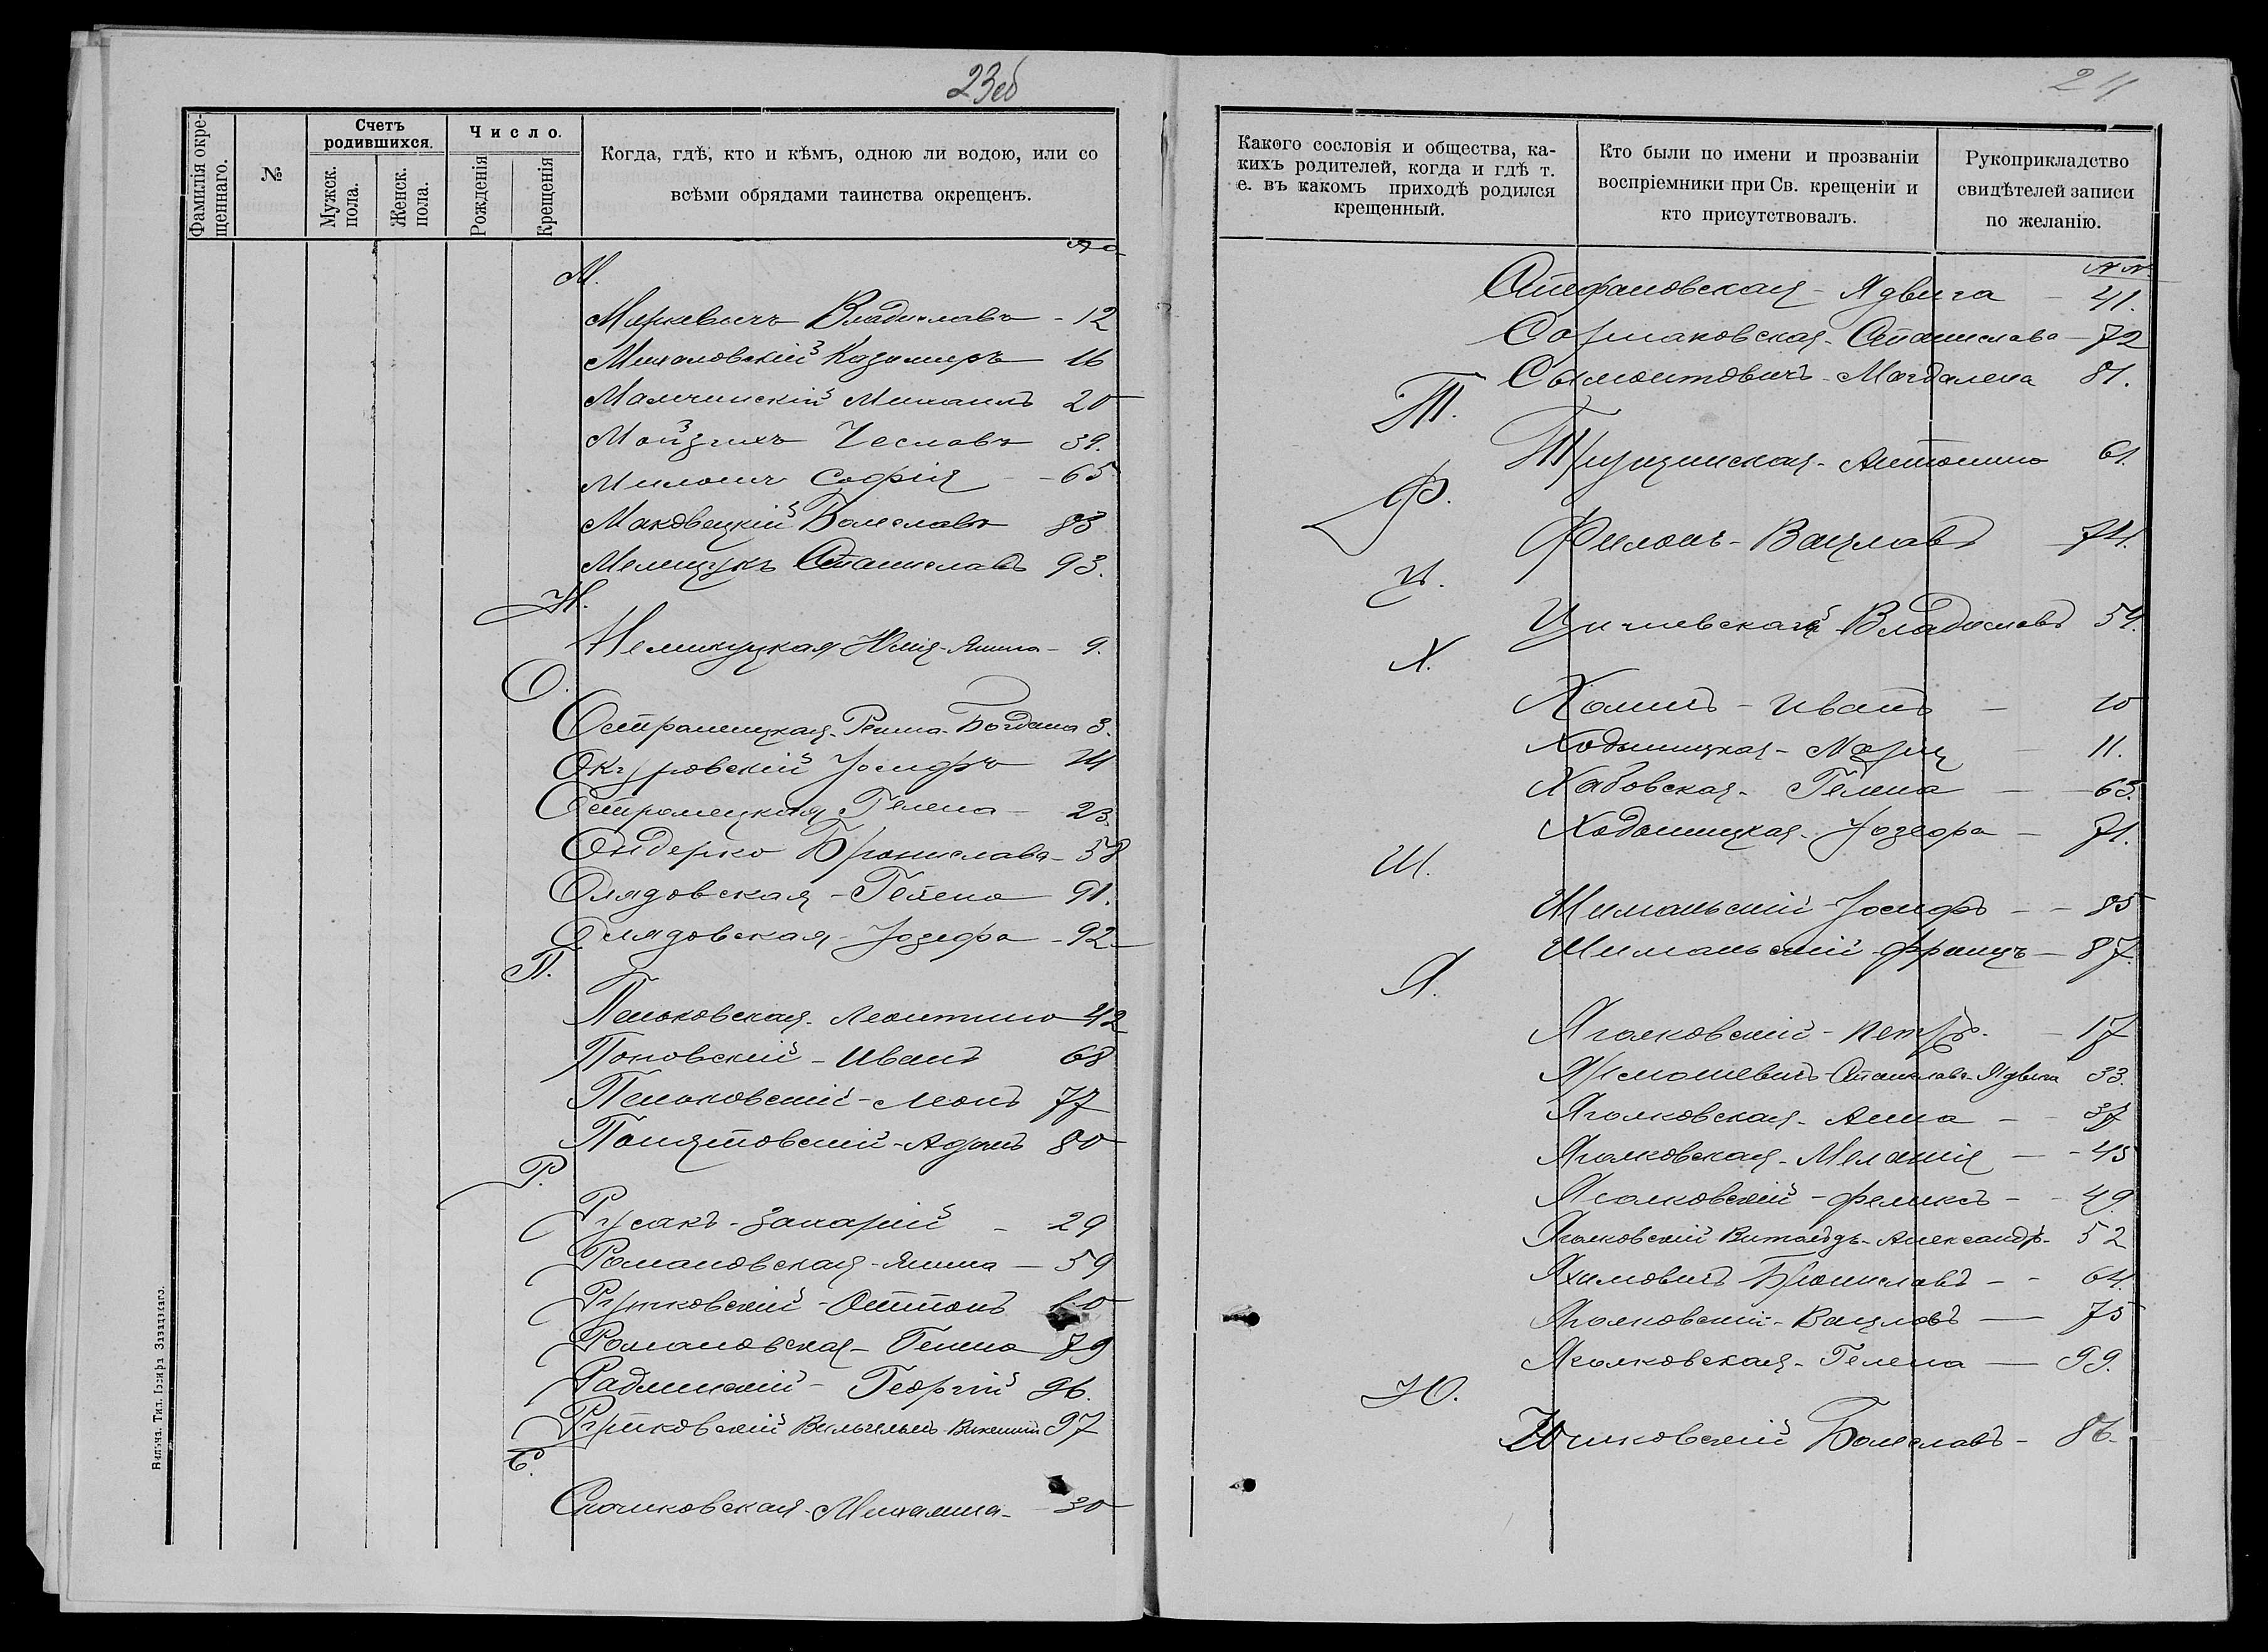 23об
Фамилія окрещеннаго.
№
Счетъ родившихся.
Мужск. пола.
Женск. пола.
Число.
Рожденія
Крещенія
Когда, гдѣ, кто и кѣмъ, одною ли водою, или со
всѣми обрядами таинства окрещенъ.
М.
Миркевичъ Владиславъ - 12
Михаловскій Казимиръ 16
Малчинскій Михаилъ 20
Чеславъ 39.
Софія - 65
Маковецкій Болеславъ 83
Мелещукъ Станиславъ 93.
Н.
Юлія-Янина - 9.
О.
Остромецкая-Регина-Богдана 3.
Окуровскій Іосифъ
Остромецкая Гелена - 23.
Ондерко Бронислава - 58
Олядовская - Гелена 91.
Олядовская - Іозефа - 92
П.
Пеньковская - Леонтина 42
Поповскій - Иванъ 68
Пеньковскій - Леонъ 77
Понятовскій - Адамъ 80
Р.
Русакъ - Захарій - 29
Романовская - Янина - 59
Рутковскій - Оттонъ
Романовская - Гелена 79
Радлинскій - Георгій 96.
Рутковскій Вильгельмъ-Викентій 97
С.
Скочковская - Михалина - 30
Вильна. Тип. Іосифа Завадзкаго.
24
Какого сословія и общества, ка-
кихъ родителей, когда и гдѣ т.
е. въ какомъ приходѣ родился
крещенный.
Кто были по имени и прозваніи
воспріемники при Св. крещеніи и
кто присутствовалъ.
Рукоприкладство
свидѣтелей записи
по желанію.
NN.
Стефановская - Ядвига - 41.
Сормаковская - Станислава - 72
Сымонтовичъ - Магдалена 81.
Т.
Антонина 61.
Ф.
Филонъ - Вацлавъ 74.
Ц.
Владиславъ 54.
Х.
Хомичъ - Иванъ - 10
Ходыницкая - Марія - 11.
Хабовская - Гелена - 63.
Ходыницкая - Іозефа - 71.
Ш.
Шиманьскій - Іосифъ - - 85
Шиманьскій - Францъ - 87.
Я.
Яголковскій - Петръ - 17
Станислава-Ядвига 33.
Яголковская - Анна - 37
Яголковская - Меланія - - 45
Яголковскій - Феликсъ - - 49
Яголковскій Витольдъ-Александръ - 52
Яхимовичъ Брониславъ - - 64.
Яголковскій - Вацлавъ - 75
Яголковская - Гелена - 99.
Ю.
Юшковскій Болеславъ - 86.